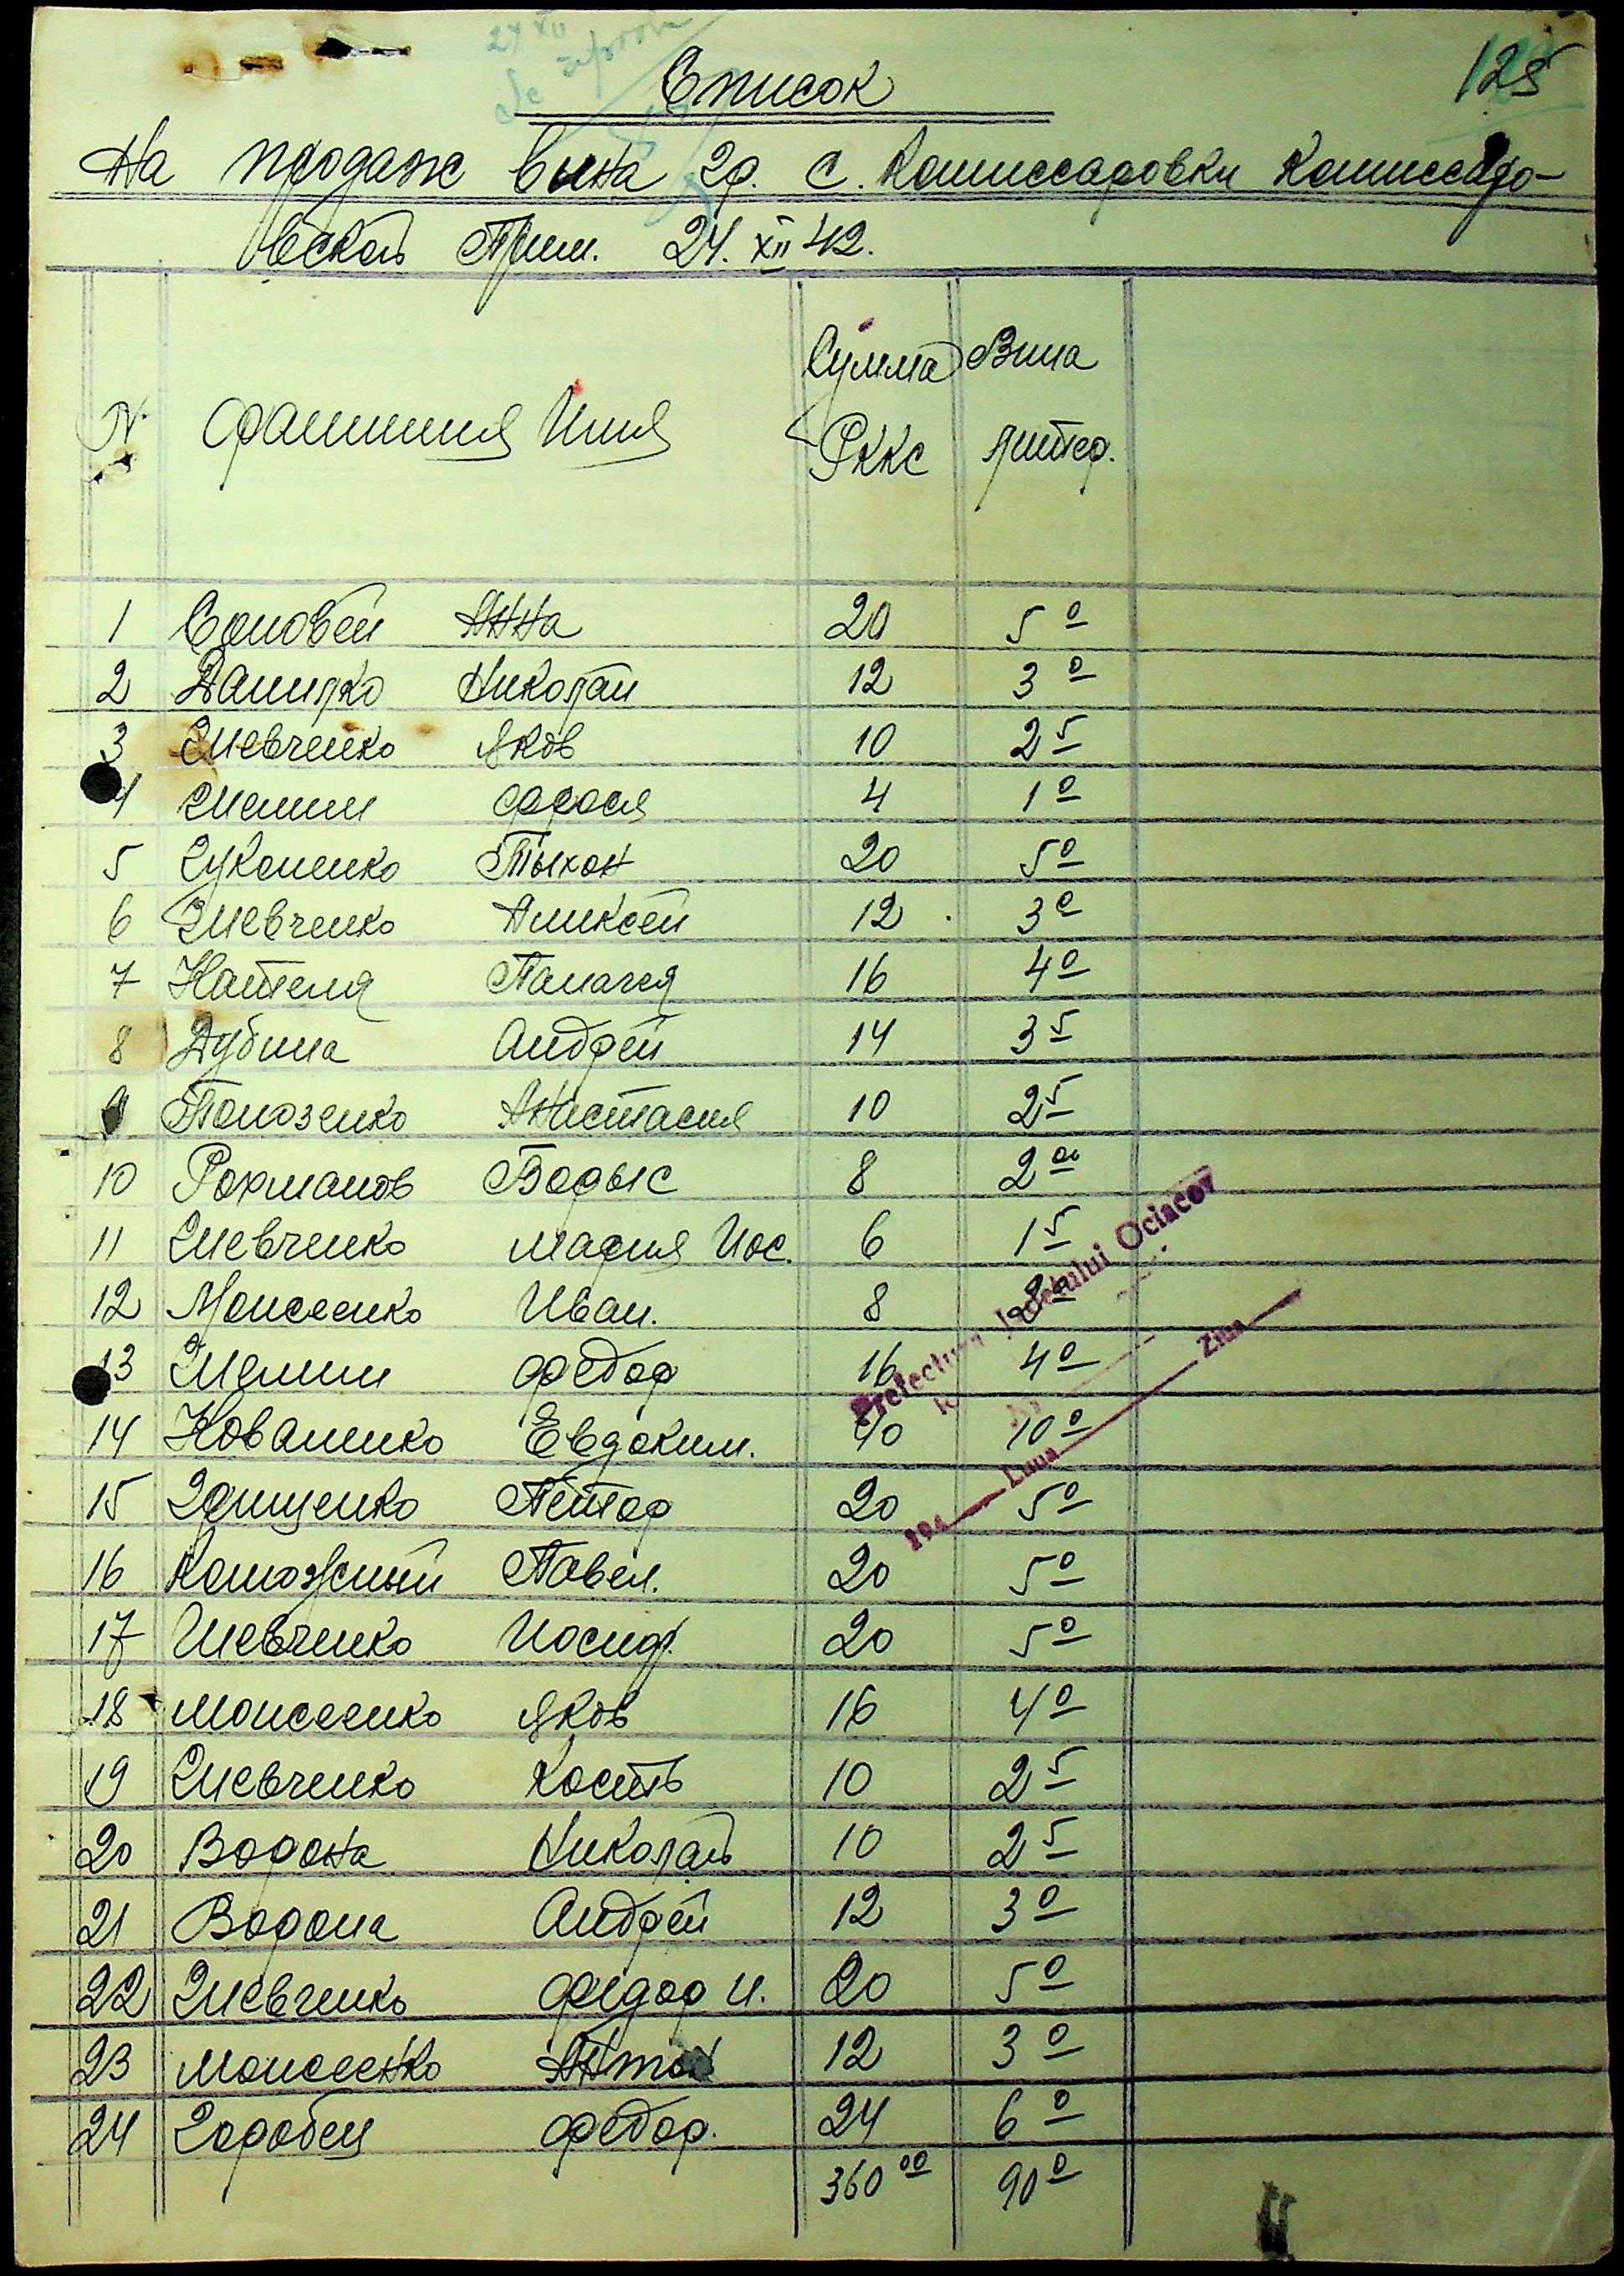 125
Список
На продаж вина гр. с. Комиссаровки Комиссаро-
вской Прим. 24. XII 42.
N Фамилия Имя Сумма Рккс Вина литер.
1 Соловей Анна 20 5 0
2 Данилко Николай 12 3 0
3 Шевченко Яков 10 2 5
4 Шелип 4 1 0
5 Тыхон 20 5 0
6 Шевченко Аликсей 12 3 0
7 Палагея 16 4 0
8 Дубина Андрей 14 3 5
9 Анистасия 10 2 5
10 Рохманов Борыс 8 2 00
11 Шевченко Мария Иос. 6 1 5
12 Моисеенко Иван. 8 2
13 Шелип Федор 16 4 0
14 Коваленко Евдоким. 40 10 0
15 Грищенко Петор 20 5 0
16 Павел. 20 5 0
17 Шевченко Иосиф. 20 5 0
18 Моисеенко Яков 16 4 0
19 Шевченко Кость 10 2 5
20 Ворона Николай 10 2 5
21 Ворона Андрей 12 3 0
22 Шевченко Фёдор И. 20 5 0
23 Моисеенко Антон 12 3 0
24 Горобец Федор. 24 6 0
360 00 90 0
Prefectura Judetului Ociacov
194 Luna Ziua